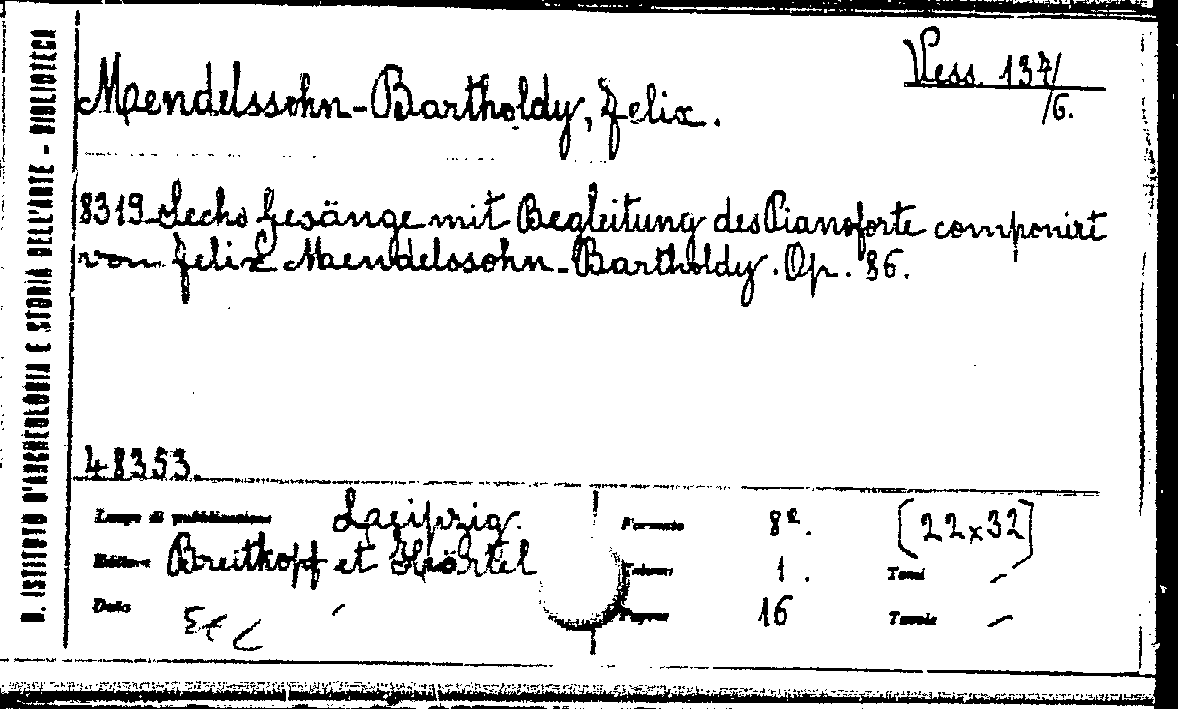 R. ISTITUTO D'ARCHEOLOGIA E STORIA DELL'ARTE - BIBLIOTECA
Vess. 137/
/6.
Mendelssohn-Bartholdy, Felix.
8319 Sechs Gesänge mit Begleitung des Pianoforte componirt
von Felix Mendelssohn-Bartholdy. Op. 86.
48353.
Luogo di pubblicazione Leipzig. Formato 8º. [22x32]
Editore Breitkopf et Härtel Volumi 1. Tomi -
Data - Pagine 16 Tavole -